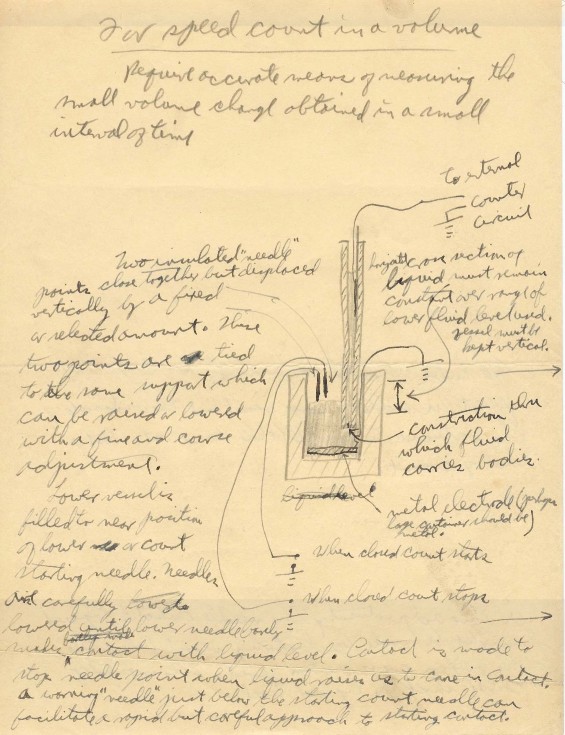 For speed count in a volume
Require accurate means of measuring the
small volume change obtained in a small
interval of time
to external
counter
circuit
Two insulated "needle"
points close together but displaced
vertically by a fixed
or selected amount. These
two points are tied
to the same support which
can be raised or lowered
with a fine and coarse
adjustment.
Lower vessel is
filled to near position
of lower or count
starting needle. Needles
and carefully
lowered until lower needle barely
makes contact with liquid level. Contact is made to
stop "needle point when liquid raises as to come in contact.
a warning "needle" just below the starting count needle can
facilitate a rapid but careful approach to starting contact.
cross section of
liquid must remain
constant over range of
lower fluid level used.
vessel must be
kept vertical.
constriction thru
which fluid
carries bodies.
metal electrode (perhaps
container should be
metal.)
liquid level
when closed count starts
when closed count stops